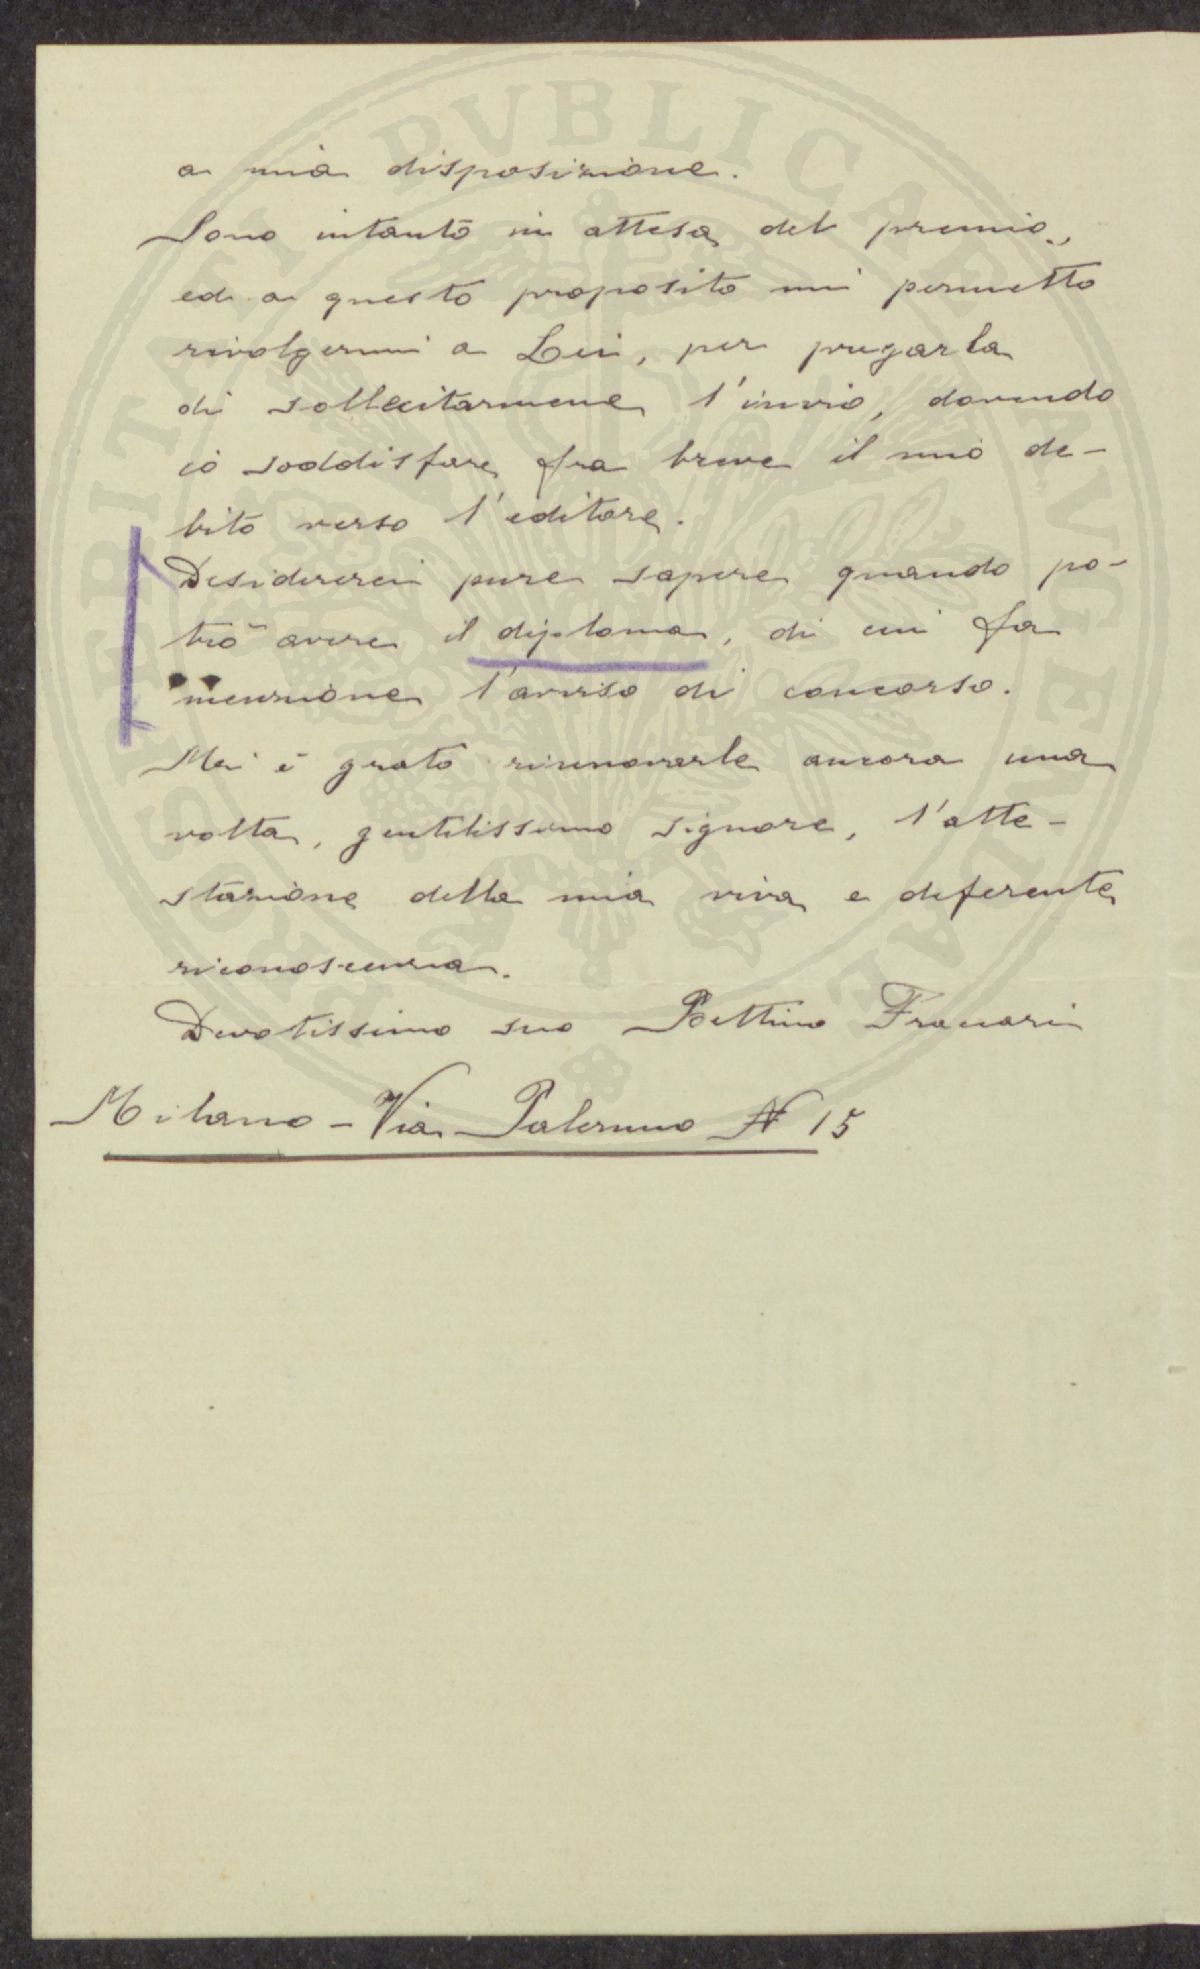 a mia disposizione.
Sono intanto in attesa del premio,
ed a questo proposito mi permetto
rivolgermi a Lei, per pregarla
di sollecitarmene l'invio, dovendo
io soddisfare fra breve il mio de-
bito verso l'editore.
Desidererei pure sapere quando po-
trò avere il diploma, di cui fa
menzione l'avviso di concorso.
Mi è grato rinnovarle ancora una
volta, gentilissimo signore, l'atte-
stazione della mia viva e deferente
riconoscenza.
Devotissimo suo Bettino
Milano - Via Palermo N 15
PROSPERITATI PVBLICAE AVGENDAE